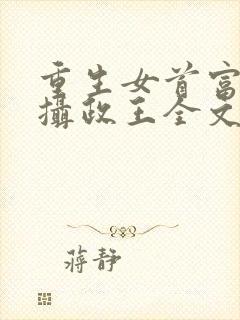 重生女首富
攝政王全文
蔣靜